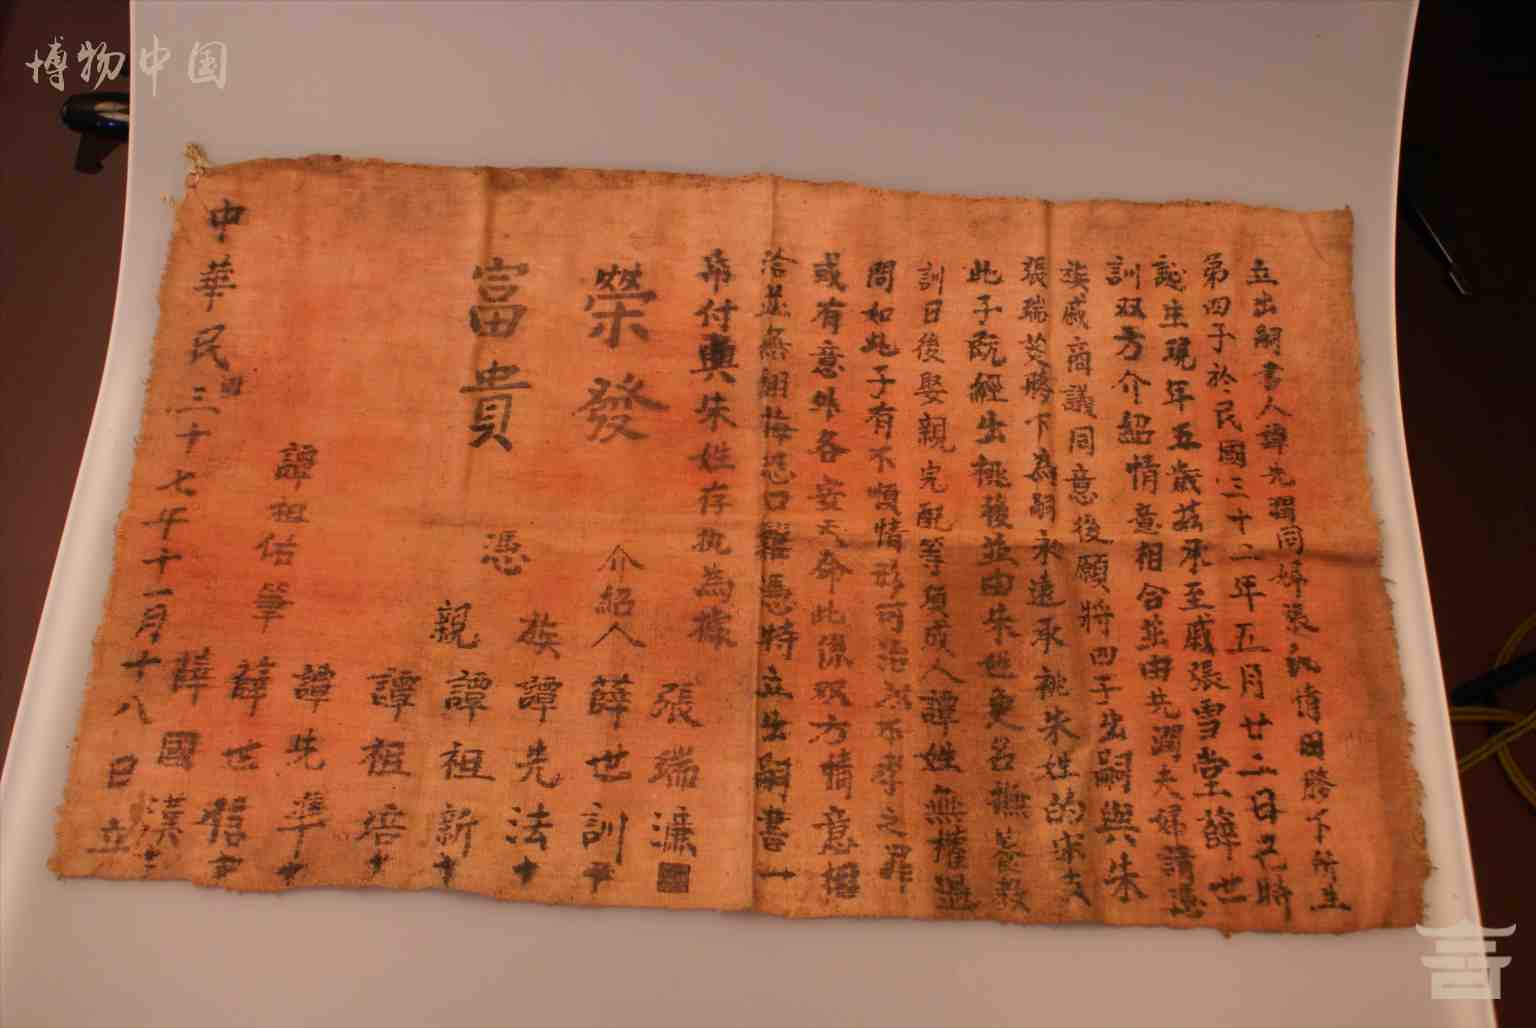 博物中国
立出嗣書人譚先潤同婦張氏情因膝下所生
第四子於民國三十二年五月廿二日己時
誕生現年五歲茲承至戚張雪堂薛世
訓双方介紹情意相合並由先潤夫婦請憑
族戚商議同意後願將四子出嗣與朱
張瑞芝膝下為嗣永遠承祧朱姓的宗支
此子既經出祧後並由朱姓更名撫養教
訓日後娶親完配等項成人譚姓無權過
問如此子有不順情形可治以不孝之罪
或有意外各安天命此係双方情意
洽並無翻悔恐口難憑特立出嗣書一
帋付與朱姓存执為據
榮發
富貴
張瑞濂
介紹人 薛世訓
憑
族 譚先法
親 譚祖新
譚祖培
譚先準
薛世楷
薛國漢
譚祖佑筆
中華民國三十七年十一月十八日立